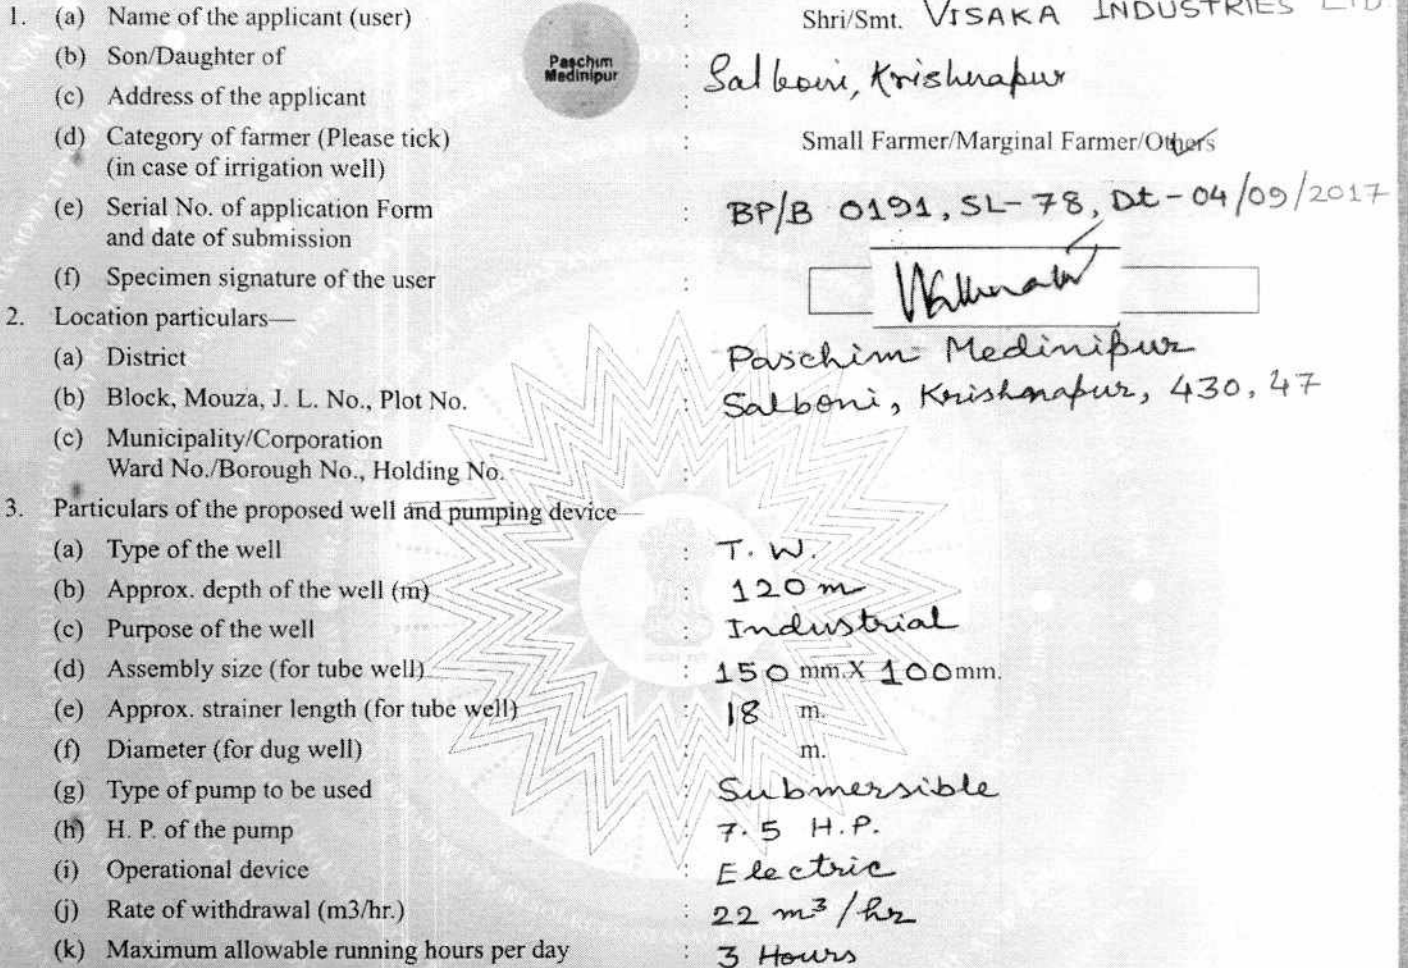 1. (a) Name of the applicant (user) : Shri/Smt. VISAKA INDUSTRIES LTD.
Paschim
Medinipur
(b) Son/Daughter of :
(c) Address of the applicant : Salboni, Krishnapur
(d) Category of farmer (Please tick) : Small Farmer/Marginal Farmer/Others
(in case of irrigation well)
(e) Serial No. of application Form : BP/B 0191, SL-78, Dt-04/09/2017
and date of submission
(f) Specimen signature of the user :
2. Location particulars—
(a) District : Paschim Medinipur
(b) Block, Mouza, J. L. No., Plot No. : Salboni, Krishnapur, 430, 47
(c) Municipality/Corporation
Ward No./Borough No., Holding No. :
3. Particulars of the proposed well and pumping device—
(a) Type of the well : T. W.
(b) Approx. depth of the well (m) : 120 m
(c) Purpose of the well : Industrial
(d) Assembly size (for tube well) : 150 mm X 100 mm.
(e) Approx. strainer length (for tube well) : 18 m.
(f) Diameter (for dug well) : m.
(g) Type of pump to be used : Submersible
(h) H. P. of the pump : 7.5 H.P.
(i) Operational device : Electric
(j) Rate of withdrawal (m3/hr.) : 22 m³/hr
(k) Maximum allowable running hours per day : 3 Hours